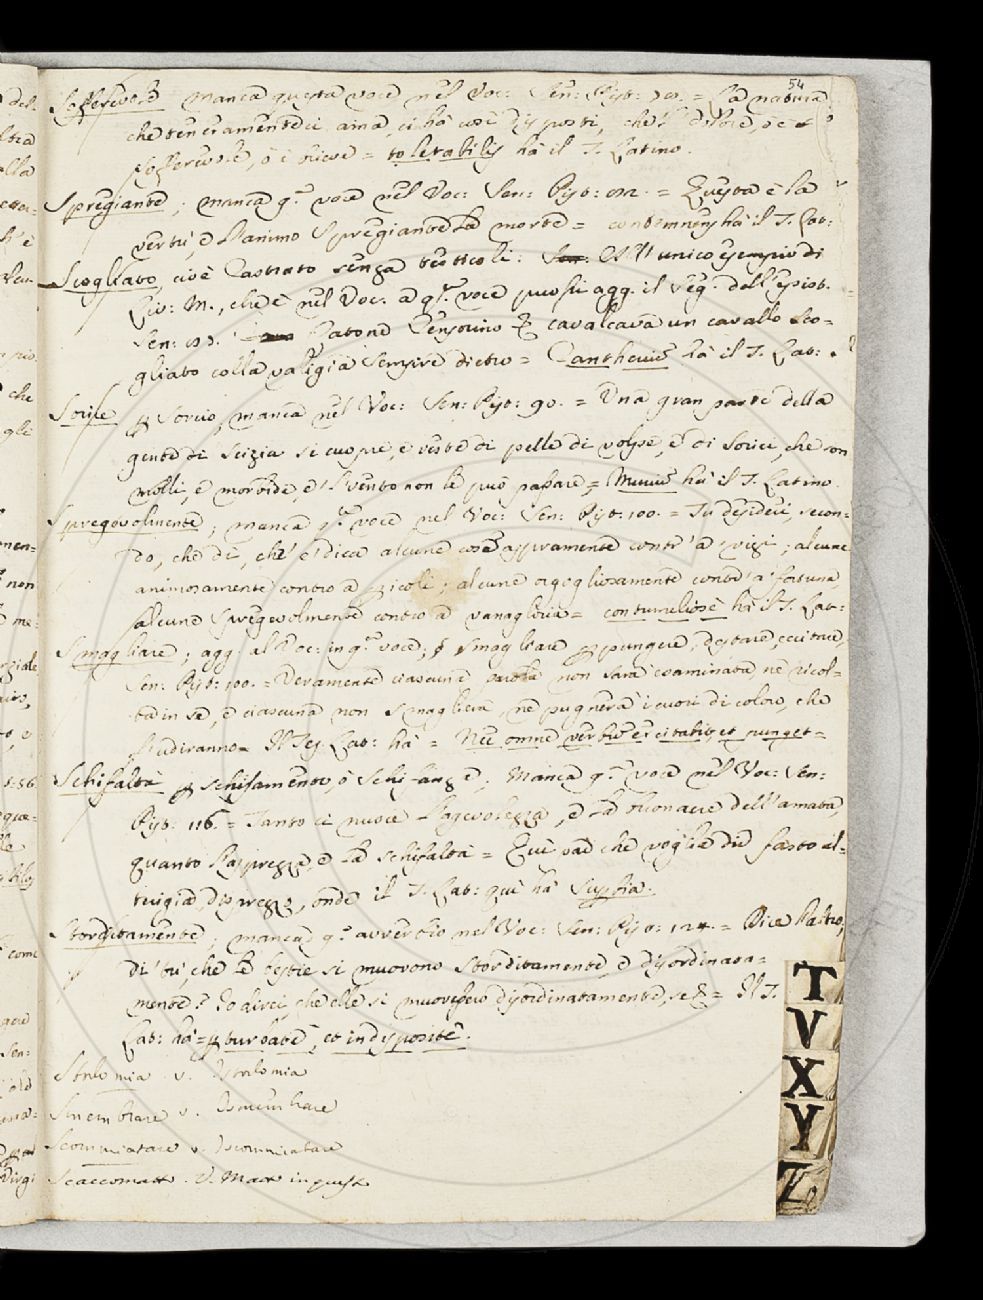 54
Sofferevole manca questa voce nel Voc: Sen: Pist: 70. = La natura
che teneramente ci ama, ci ha così disposti, che 'l dolore, o è
sofferevole, o è brieve = tolerabilis ha il T. Latino.
Spregiante; manca q.ª voce nel Voc: Sen: Pist: = Questa è la
vertù, e l'animo spregiante la morte = contemnens ha il T. Lat:
Scogliato, cioè Castrato senza testicoli: All'unico esempio di
Liv: M., che è nel Voc. a q.ª voce puossi agg. il seg. dell'epist.
Sen: Catone Censorino & cavalcava un cavallo sco-
gliato colla valigia sempre dietro = Cantherius ha il T. Lat:
Sorice p Sorcio, manca nel Voc: Sen: Pist: 90. = Una gran parte della
gente di Scizia si cuopre, e veste di pelle di volpe, e di Sorici, che son
molli, e morbide, e 'l vento non le può passare = Murium ha il T. Latino.
Spregevolmente; manca q.ª voce nel Voc: Sen: Pist: 100. = Tu desideri, secon-
do, che di', ch'e' dica alcune cose aspramente contr'a' vizi; alcune
animosamente contro a' pericoli; alcune orgogliosamente contr'a fortuna,
alcune spregevolmente contro a vanagloria = contumeliose ha il T. Lat:
Smagliare; agg. al Voc: in q.ª voce; smagliare p pungere, destare, eccitare,
Sen: Pist: 100. = Veramente ciascuna parola non sarà esaminata, ne ricol-
ta in se, e ciascuna non smaglierà, ne pugnerà i cuori di coloro, che
l'udiranno = Il Tes. Lat: ha = Nec omne verbum excitabit, et punget =
Schifaltà p schifamento, o schifanza; Manca q.ª voce nel Voc: Sen:
Pist: 116. = Tanto ci nuoce l'agevolezza, e la buonaere dell'amata,
quanto l'asprezza, e la schifaltà = Qui par che voglia dir fasto al-
terigia, disprezzo, onde il T. Lat: qui ha
Storditamente; manca q.º avverbio nel Voc: Sen: Pist: 124. = Dice l'altro,
di' tu, che le bestie si muovono storditamente, e disordinata-
mente? Io direi, che elle si muovessero disordinatamente, se & = Il T.
Lat: ha = pturbate, et indisposite.
Strolomia v. Istrolomia
Smembrare v. Ismembrare
Scomiatare v. Iscomiatare
Scaccomatto v. Matto in quest
T
V
X
Y
Z